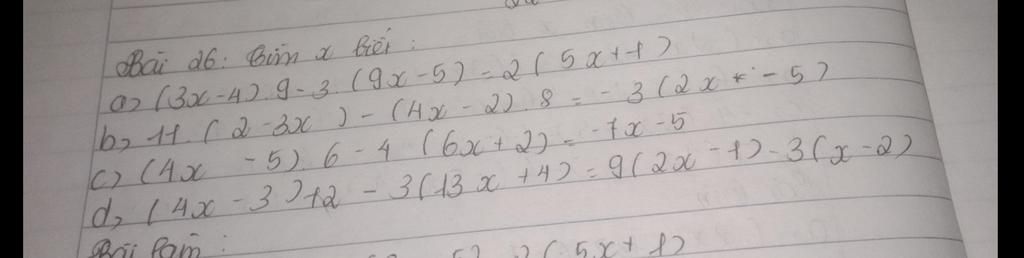 Bài 26: Tìm x biết:
a) (3x-4).9-3.(9x-5)=2(5x+1)
b, 11.(2-3x)-(4x-2).8=-3(2x+-5)
c) (4x-5).6-4(6x+2)=-7x-5
d, (4x-3)12-3(13x+4)=9(2x-1)-3(x-2)
Bài làm:
2(5x+1)